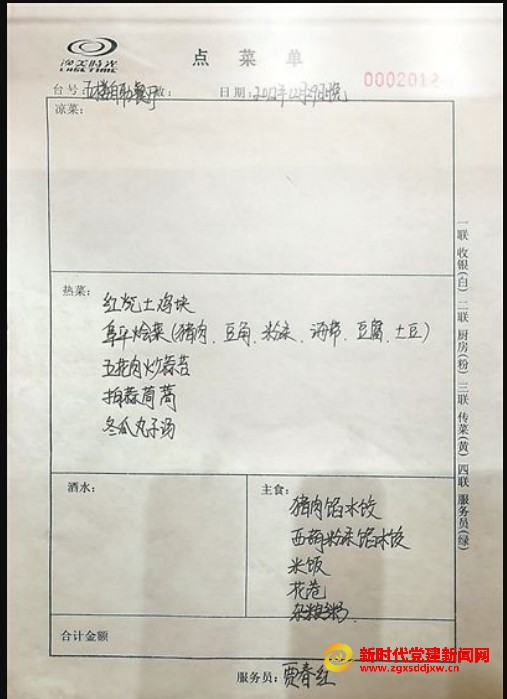 逸美时光
LIKE TIME
点菜单
台号：五楼自助餐厅 数： 日期：2012年12月29日晚
0002012
凉菜：
热菜：
红烧土鸡块
阜平烩菜(猪肉、豆角、粉条、海带、豆腐、土豆)
五花肉炒蒜苔
拍蒜茼蒿
冬瓜丸子汤
酒水：
主食：
猪肉馅水饺
西葫粉条馅水饺
米饭
花卷
杂粮粥
合计金额
服务员：贾春红
一联 收银(白) 二联 厨房(粉) 三联 传菜(黄) 四联 服务员(绿)
新时代党建新闻网
www.zgxsddjxw.cn